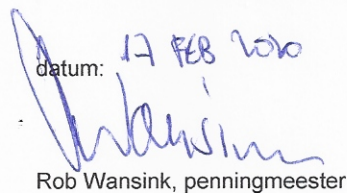 datum: 17 FEB 2020
Rob Wansink, penningmeester